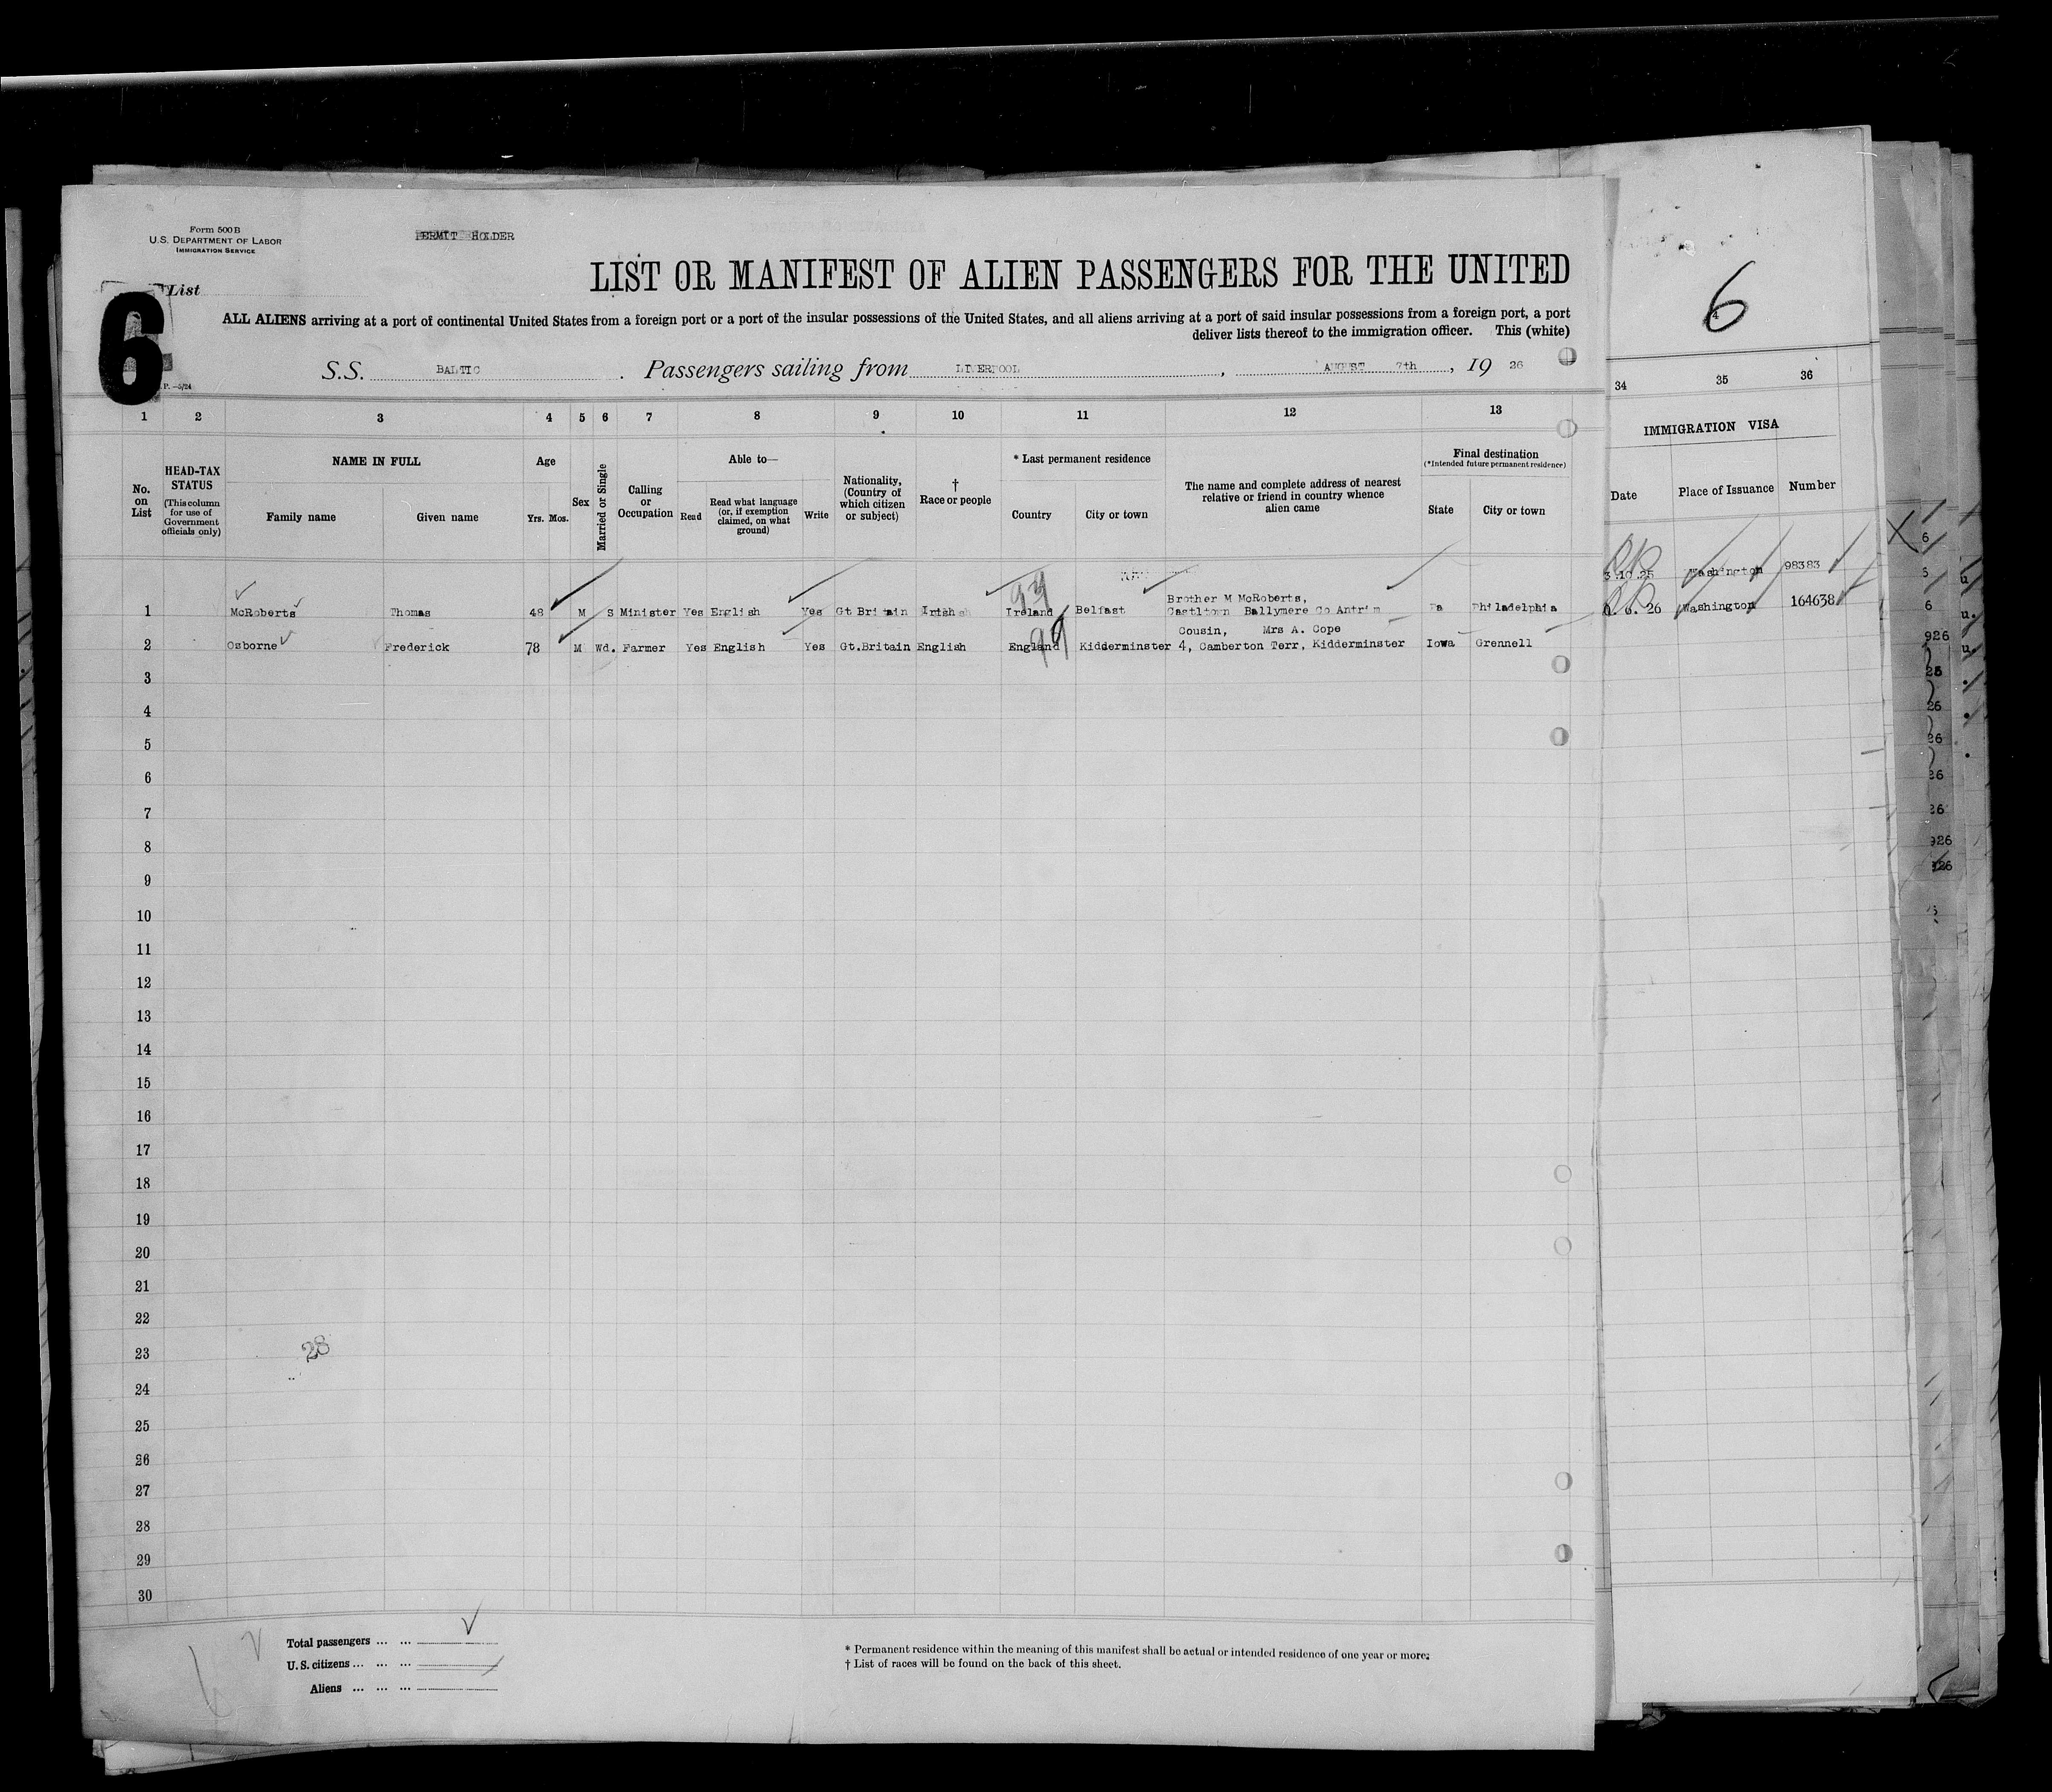 Form 500 B
U.S. DEPARTMENT OF LABOR
IMMIGRATION SERVICE
PERMIT HOLDER
6
List
LIST OR MANIFEST OF ALIEN PASSENGERS FOR THE UNITED
ALL ALIENS arriving at a port of continental United States from a foreign port or a port of the insular possessions of the United States, and all aliens arriving at a port of said insular possessions from a foreign port, a port
deliver lists thereof to the immigration officer. This (white)
S.S. BALTIC. Passengers sailing from LIVERPOOL, AUGUST 7th, 19 26
6
1 2 3 4 5 6 7 8 9 10 11 12 13 34 35 36
No. on List
HEAD-TAX STATUS
(This column for use of Government officials only)
NAME IN FULL
Family name Given name
Age
Yrs. Mos.
Sex
Married or Single
Calling or Occupation
Able to—
Read
Read what language (or, if exemption claimed, on what ground)
Write
Nationality, (Country of which citizen or subject)
† Race or people
* Last permanent residence
Country City or town
The name and complete address of nearest relative or friend in country whence alien came
Final destination
(*Intended future permanent residence)
State City or town
IMMIGRATION VISA
Date Place of Issuance Number
3 10 25 Washington 98383
Brother M McRoberts,
1 McRoberts Thomas 48 M S Minister Yes English Yes Gt Britain Irish Ireland Belfast Castltown Ballymere Co Antrim Pa Philadelphia
6. 26 Washington 164638
Cousin, Mrs A. Cope
2 Osborne Frederick 78 M Wd. Farmer Yes English Yes Gt.Britain English England Kidderminster 4, Camberton Terr, Kidderminster Iowa Grennell
99
3
4
5
6
7
8
9
10
11
12
13
14
15
16
17
18
19
20
21
22
23
28
24
25
26
27
28
29
30
Total passengers ... ...
U. S. citizens ... ... ...
Aliens ... ... ...
* Permanent residence within the meaning of this manifest shall be actual or intended residence of one year or more.
† List of races will be found on the back of this sheet.